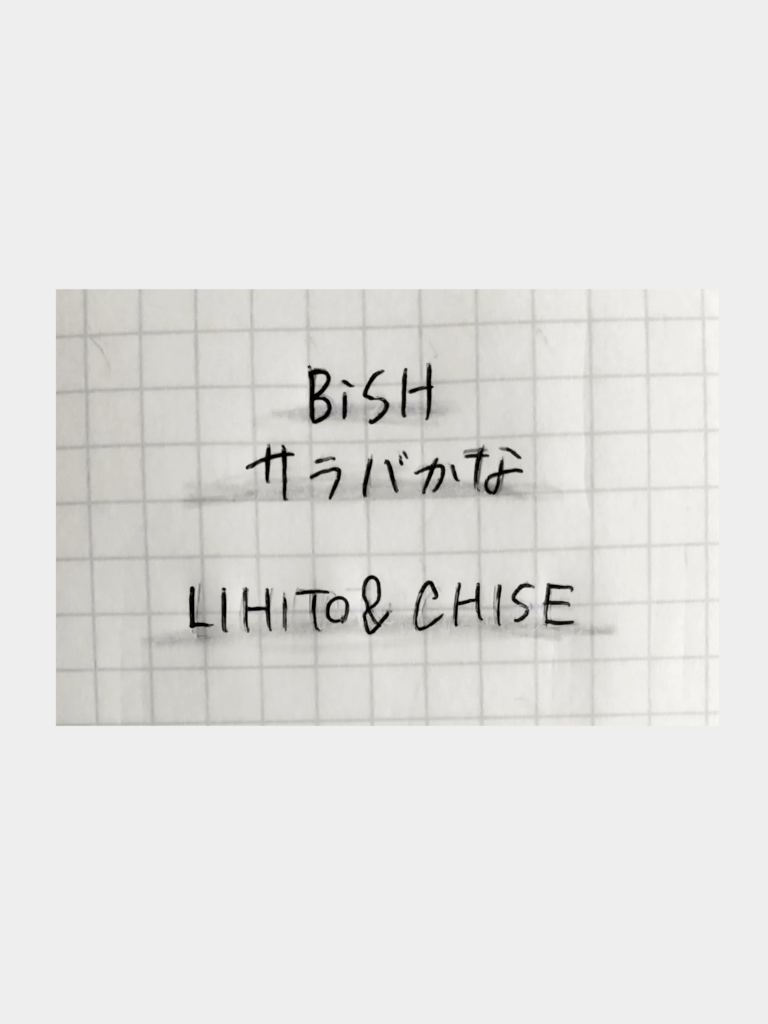 BiSH
サラバかな
LIHITO& CHISE